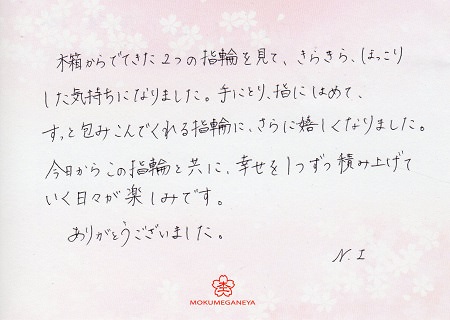 木箱からでてきた2つの指輪を見て、きらきら、ほっこり
した気持ちになりました。手にとり、指にはめて、
すっと包みこんでくれる指輪に、さらに嬉しくなりました。
今日からこの指輪と共に、幸せを1つずつ積み上げて
いく日々が楽しみです。
ありがとうございました。
N.I
MOKUMEGANEYA